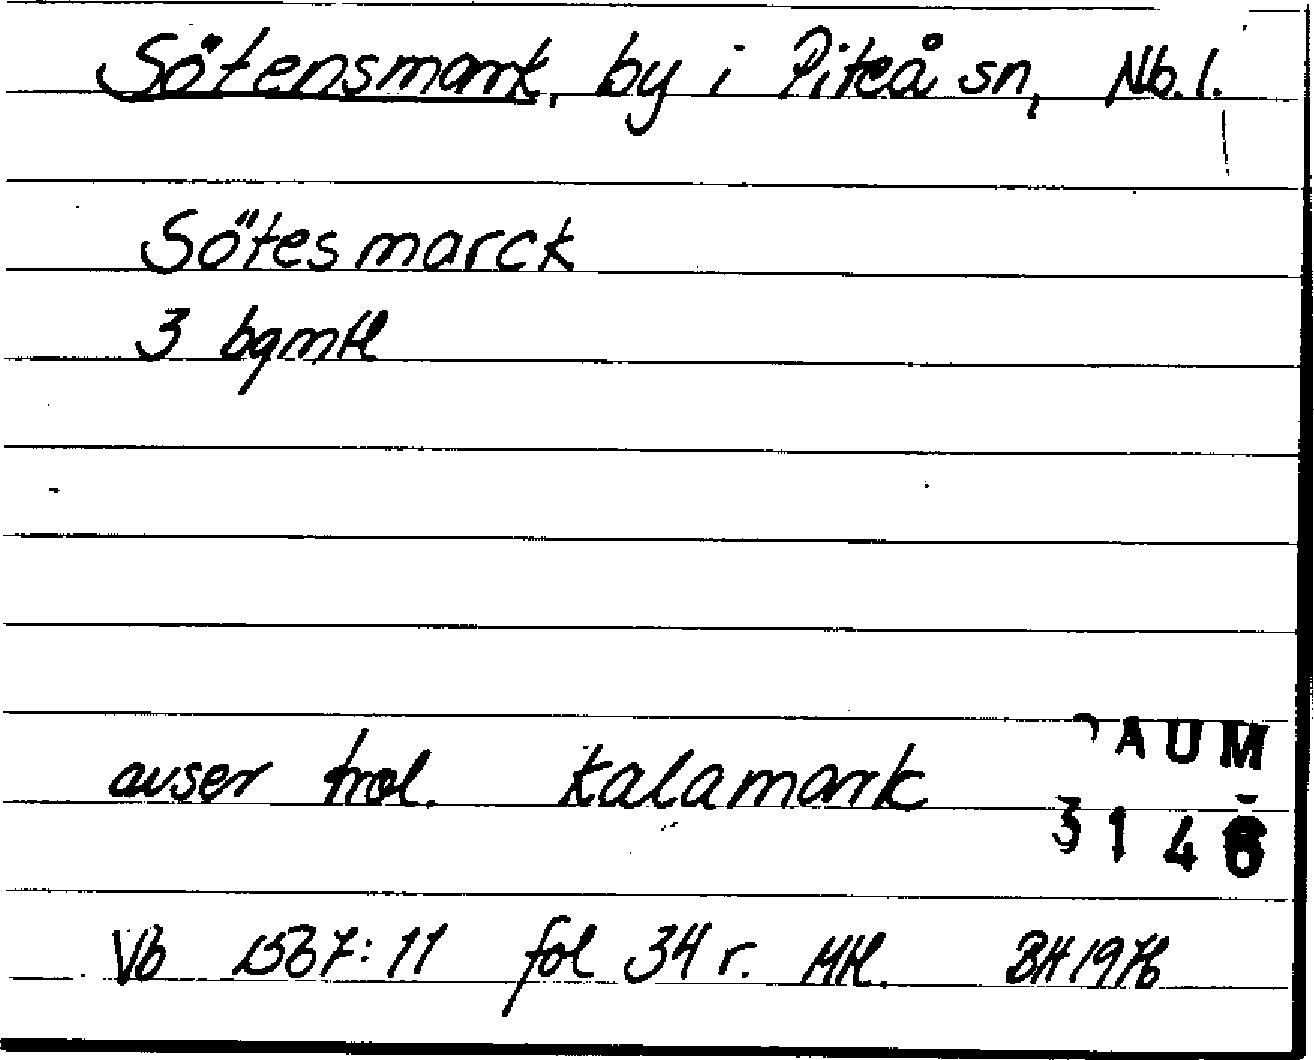 Sötensmark, by i Piteå sn, Nb.l.
Sötesmarck
3 bgmtl
avser trol. Kalamark
DAUM
3146
Vb 1567:11 fol 34 r. Mtl. BH 1976